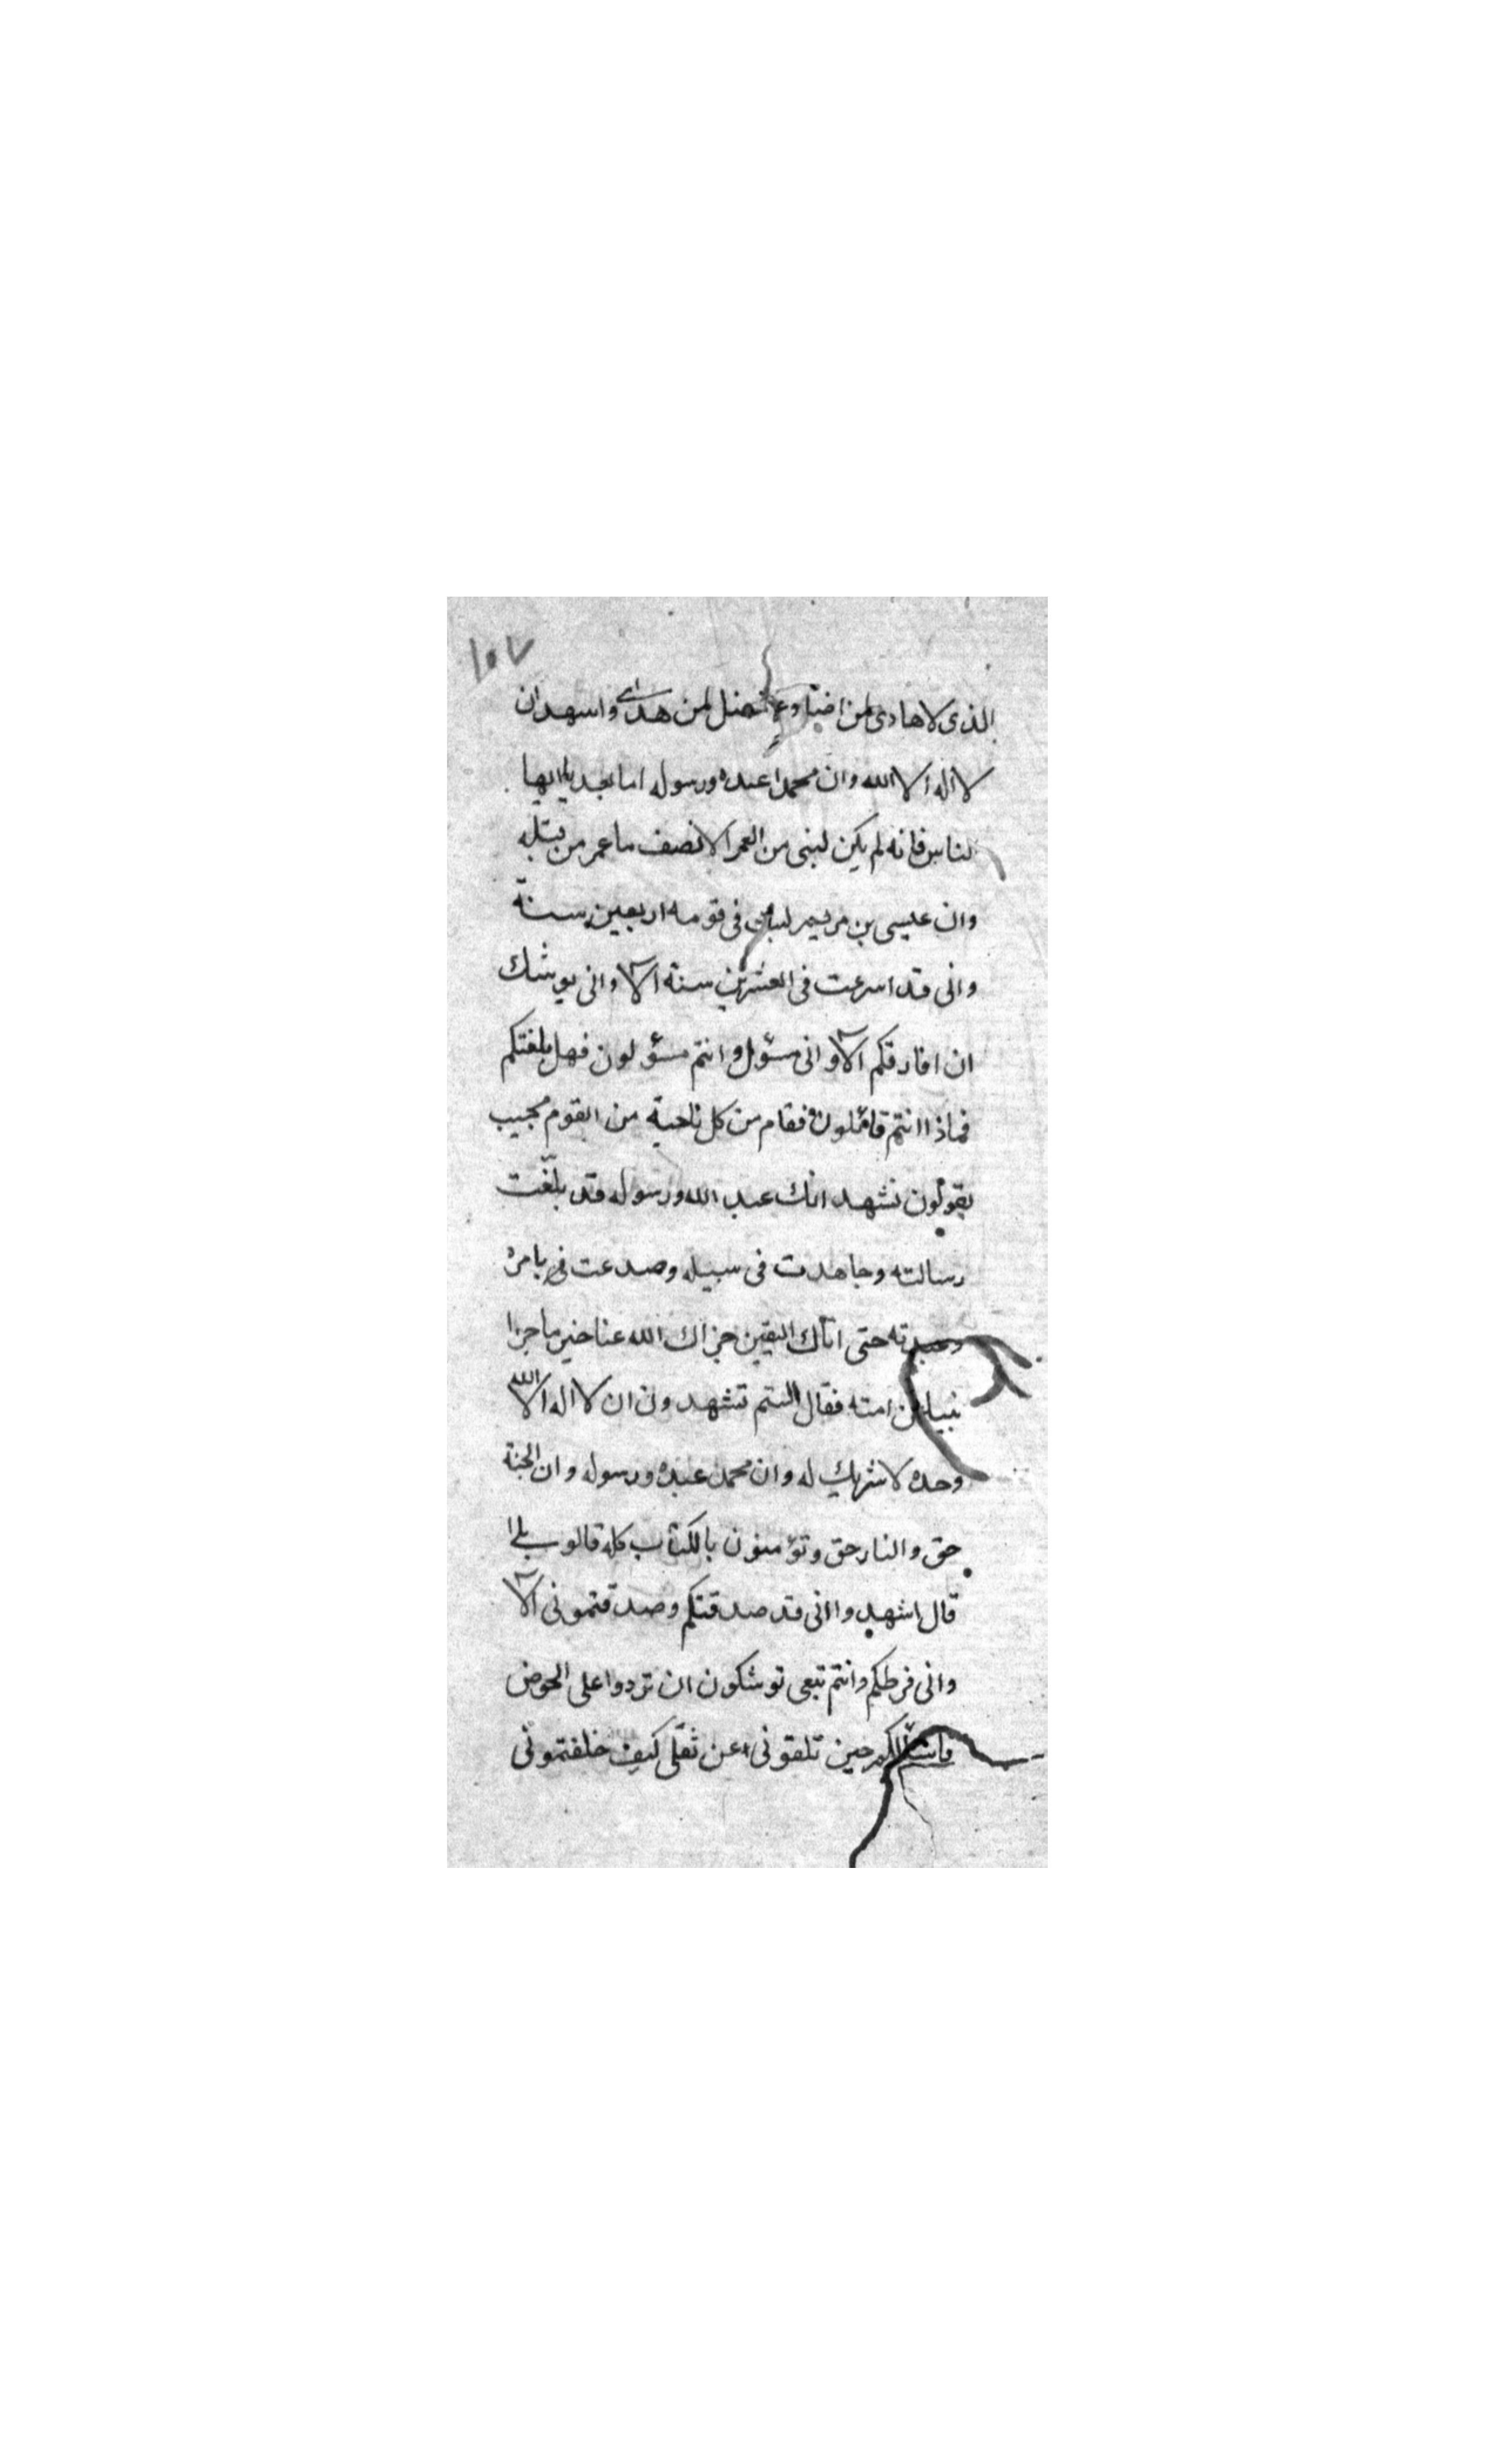 ١٥٧
الذى لا هادى لمن اضل و مضل لمن هدى واشهد ان
لا اله الا الله وان محمدا عبده ورسوله اما بعد يا ايها
لناس فانه لم يكن لنبى من العمر الا نصف ما عمر من قبله
وان عيسى بن مريم لبث فى قومه اربعين سنة
وانى قد اسرعت فى العشرين سنة الا وانى يوشك
ان افارقكم الا وانى مسؤل وانتم مسؤلون فهل بلغتكم
فماذا انتم قائلون فقام من كل ناحية من القوم مجيب
يقولون نشهد انك عبد الله ورسوله قد بلّغت
رسالته وجاهدت فى سبيله وصدعت فى بامره
وعبدته حتى اتاك اليقين جزاك الله عنا خير ما جزا
نبيا عن امته فقال الستم تشهدون ان لا اله الا الله
وحده لا شريك له وان محمد عبده ورسوله وان الجنة
حق والنار حق وتؤمنون بالكتاب كله قالو بلا
قال اشهد واانى قد صدقتكم وصدقتمونى الا
وانى فرطكم وانتم تبعى توشكون ان تردوا على الحوض
حين تلقونى عن ثقلى كيف خلفتمونى